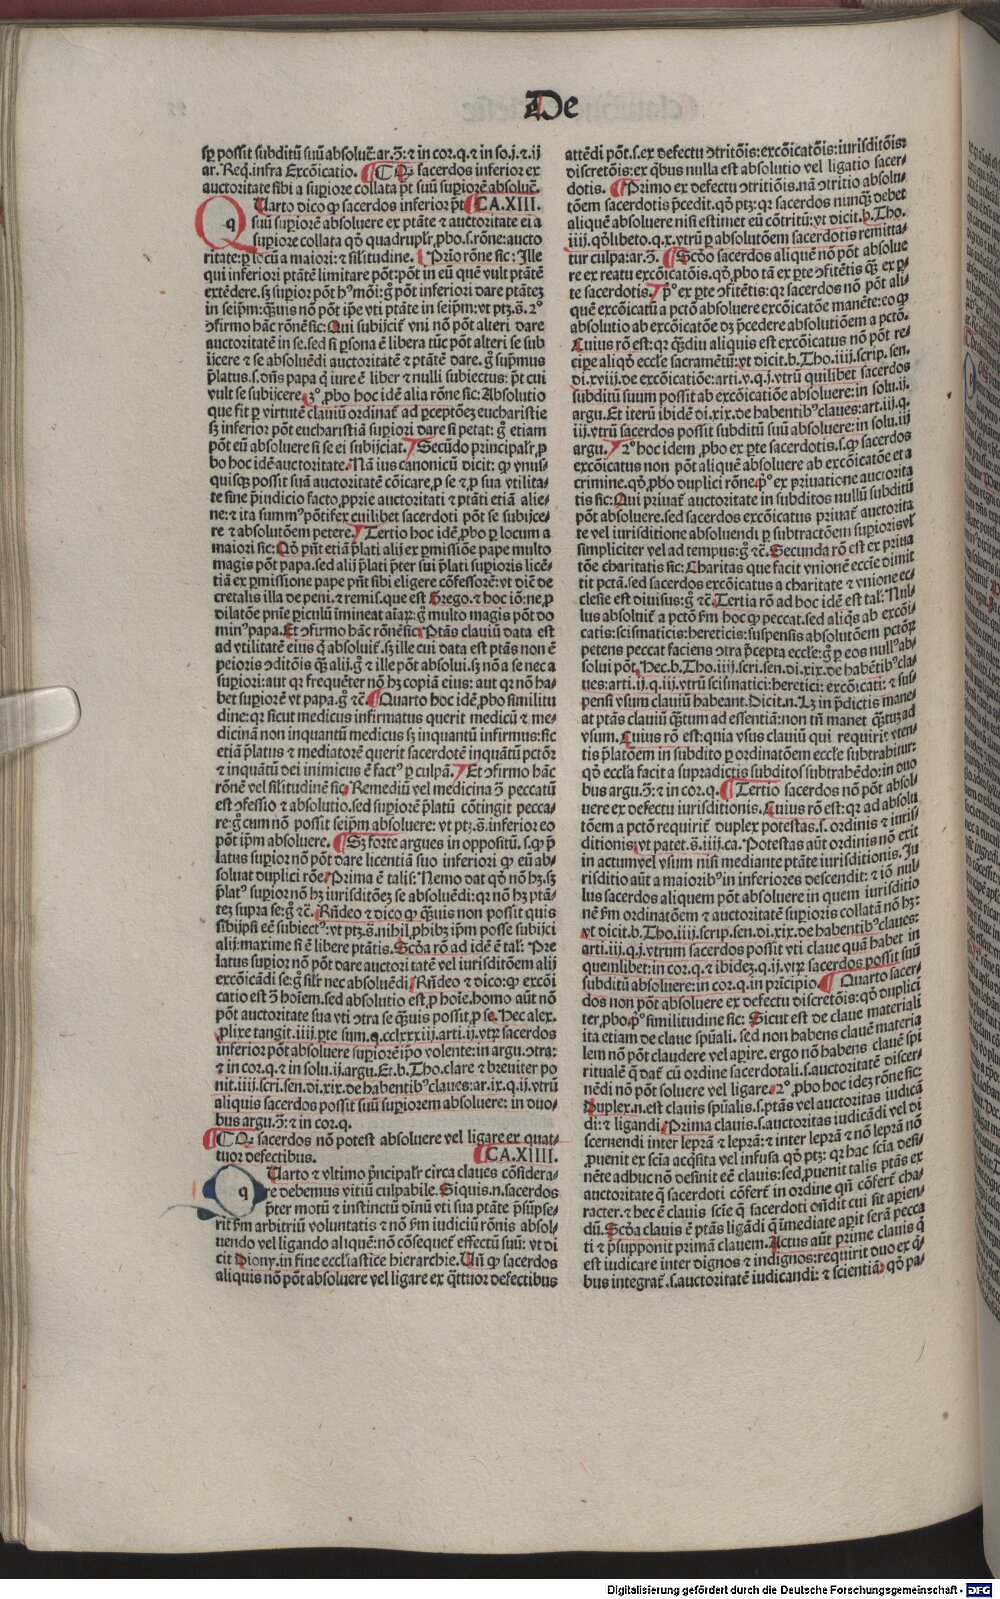 De
sp̱ possit subditū suū absoluē:ar.ɔ̄:⁊ in cor.q.⁊ in so.j.⁊.ij
ar. Req̄.infra Excōicatio. ¶ CQꝛ sacerdos inferior ex
auctoritate sibi a supiore collata p̄t suū supiorē absoluē.
CA.XIII.
QUarto dico ꝙ sacerdos inferior p̄t
suū supiorē absoluere ex ptāte ⁊ auctoritate ei a
supiore collata qd̄ quadruplr̄ ꝓbo.s.rōne:aucto
ritate:p locū a maiori:⁊ silitudine. Prīo rōne sic: Ille
qui inferiori ptātē limitare pōt:pōt in eū quē vult ptātē
extēdere.sꝫ supior pōt hᵒ mōi:g̊ pōt inferiori dare ptāteꝫ
in seipm̄:q̄uis nō pōt ip̄e vti ptāte in seipm̄:vt ptꝫ.s̄.2º
ɔfirmo hāc rōnē sic: Qui subijcit̄ vni nō pōt alteri dare
auctoritatē in se.sed si p̱sona ē libera tūc pōt alteri se sub
ijcere ⁊ se absoluēdi auctoritatē ⁊ ptātē dare. g̊ sup̄mus
p̄latus.s.dn̄s papa q̄ iure ē liber ⁊ nulli subiectus: p̄t cui
vult se subijcere. 3º ꝓbo hoc idē alia rōne sic: Absolutio
que fit p virtutē clauiū ordinat̄ ad p̱ceptōeꝫ eucharistie
sꝫ inferior pōt eucharistiā supiori dare si petat: g̊ etiam
pōt eū absoluere si se ei subijciat. Secūdo principalr̄ ꝓ
bo hoc idē auctoritate. Nā ius canonicū dicit: ꝙ vnus-
quisqꝫ possit suā auctoritatē cōicare,p se ⁊ ꝓ sua vtilita-
te sine p̄iudicio facto,ꝓprie auctoritati ⁊ ptāti etiā alie-
ne:⁊ ita summᵒ pōtifex cuilibet sacerdoti pōt se subijce-
re ⁊ absolutōem petere. Tertio hoc idē ꝓbo p locum a
maiori sic: Qd̄ pn̄t etiā p̄lati alij ex p̱missiōe pape multo
magis pōt papa.sed alij p̄lati p̄ter sui p̄lati supioris licē-
tiā ex p̱missione pape pn̄t sibi eligere cōfessorē:vt dic̄ de
cretalis illa de peni.⁊ remis.que est Grego.⁊ hoc iō:ne ꝓ
dilatōe pn̄ie piculū īmineat aīaꝝ:g̊ multo magis pōt do
minᵒ papa. Et ɔfirmo hāc rōnē sic: Ptās clauiū data est
ad vtilitatē eius q̄ absoluit̄.sꝫ ille cui data est ptās non ē
peioris ɔditōis q̄ꝫ alij.g̊ ⁊ ille pōt absolui.sꝫ nō a se nec a
supiori:aut qꝛ frequēter nō hꝫ copiā eius: aut qꝛ nō ha-
bet supiorē vt papa.g̊ ⁊c̄. ¶ Quarto hoc idē ꝓbo similitu
dine: qꝛ sicut medicus infirmatus querit medicū ⁊ me-
dicinā non inquantū medicus sꝫ inquantū infirmus: sic
etiā p̄latus ⁊ mediatorē querit sacerdotē inquātū pctōr
⁊ inquātū dei inimicus ē factᵒ p culpā. Et ɔfirmo hāc
rōnē vel silitudinē sic: Remediū vel medicina ɔ̄ peccatū
est ɔfessio ⁊ absolutio.sed supiorē p̄latū cōtingit pecca-
re:g̊ cum nō possit seipm̄ absoluere: vt ptꝫ.s̄.inferior eo
pōt ip̄m absoluere. ¶ Sꝫ forte argues in oppositū.s.ꝙ p̄
latus supior nō pōt dare licentiā suo inferiori ꝙ eū ab-
soluat duplici rōe. Prima ē talis: Nemo dat qd̄ nō hꝫ.sꝫ
p̄latᵒ supior nō hꝫ iurisditōeꝫ se absoluēdi: qꝛ nō hꝫ ptā-
teꝫ supra se:g̊ ⁊c̄. Rn̄deo ⁊ dico ꝙ q̄ꝫuis non possit quis
sibijpsi eē subiectᵒ:vt ptꝫ.s̄.nihil ꝓhibꝫ ip̄m posse subijci
alij:maxime si ē libere ptātis. Scd̄a rō ad idē ē tal̄: Pre
latus supior nō pōt dare auctoritatē vel iurisditōem alij
excōicādi se:g̊ silr̄ nec absoluēdi. Rn̄deo ⁊ dico:ꝙ excōi
catio est ɔ̄ hoīem.sed absolutio est ꝓ hoīe.homo aūt nō
pōt auctoritate sua vti ɔtra se q̄ꝫuis possit ꝓ se. Hec alex.
ꝓlixe tangit.iiij.p̱te sum.q.cclxxxiij.arti.ij.vtꝝ sacerdos
inferior pōt absoluere supiorē ip̄o volente:in argu.ɔtra:
⁊ in cor.q.⁊ in solu.ij.argu. Et.b.Tho.clare ⁊ breuiter po
nit.iiij.scri.sen.di.xix.de habentibᵒ claues:ar.ix.q.ij.vtrū
aliquis sacerdos possit suū supiorem absoluere: in duo-
bus argu.ɔ̄:⁊ in cor.q.
¶ CQꝛ sacerdos nō potest absoluere vel ligare ex quat-
tuor defectibus. CA.XIIII.
QUarto ⁊ vltimo p̄ncipalr̄ circa claues cōsidera-
re debemus vitiū culpabile. Siquis.n.sacerdos
p̄ter motū ⁊ instinctū diuinū vti sua ptāte p̄sūpse-
rit s̄m arbitriū voluntatis ⁊ nō s̄m iudiciū rōnis absol-
uendo vel ligando aliquē:nō cōsequet̄ effectū suū: vt di
cit Diony.in fine ecclīastice hierarchie. Vn̄ ꝙ sacerdos
aliquis nō pōt absoluere vel ligare ex q̄ttuor defectibus
attēdi pōt.s.ex defectu ɔtritōis:excōicatōis:iurisditōis:
discretōis:ex qbus nulla est absolutio vel ligatio sacer-
dotis. ¶ Primo ex defectu ɔtritiōis.nā ɔtritio absolu-
tōem sacerdotis p̄cedit.qd̄ ptꝫ: qꝛ sacerdos nunqꝫ debet
aliquē absoluere nisi estimet eū cōtritū:vt dicit.b.Tho.
iiij.qd̄libeto.q.x.vtrū p absolutōem sacerdotis remitta-
tur culpa:ar.ɔ̄. ¶ Scd̄o sacerdos aliquē nō pōt absolue
re ex reatu excōicatōis.qd̄ ꝓbo tā ex p̱te ɔfitētis q̄ꝫ ex p̱-
te sacerdotis. pº ex p̱te ɔfitētis: qꝛ sacerdos nō pōt ali-
quē excōicatū a pctō absoluere excōicatōe manēte:eo ꝙ
absolutio ab excōicatōe dꝫ p̄cedere absolutiōem a pctō.
Cuius rō est:qꝛ q̄ꝫdiu aliquis est excōicatus nō pōt re-
cipe aliqd̄ eccl̄e sacramētū:vt dicit.b.Tho.iiij.scrip.sen.
di.xviij.de excōicatiōe:arti.v.q.j.vtrū quilibet sacerdos
subditū suum possit ab excōicatiōe absoluere:in solu.ij.
argu. Et iterū ibidē di.xix.de habentibᵒ claues:art.iij.q.
iij.vtrū sacerdos possit subditū suū absoluere: in solu.iij
argu. 2º hoc idem ꝓbo ex p̱te sacerdotis.s.ꝙ sacerdos
excōicatus non pōt aliquē absoluere ab excōicatōe et a
crimine.qd̄ ꝓbo duplici rōne. pº ex priuatione auctorita
tis sic: Qui priuat̄ auctoritate in subditos nullū subditū
pōt absoluere.sed sacerdos excōicatus priuat̄ auctorita
te vel iurisditione absoluendi p subtractōem supioris vl̄
simpliciter vel ad tempus:g̊ ⁊c̄. Secunda rō est ex priua
tōe charitatis sic: Charitas que facit vnionē eccl̄ie dimit
tit pctā.sed sacerdos excōicatus a charitate ⁊ vnione ec-
clesie est diuisus:g̊ ⁊c̄. Tertia rō ad hoc idē est tal̄: Nul-
lus absoluit̄ a pctō s̄m hoc ꝙ peccat.sed aliqs ab excōi-
catis:scismaticis:hereticis:suspensis absolutōem pctōꝝ
petens peccat faciens ɔtra p̄cepta eccl̄e:g̊ p eos nullᵒ ab-
solui pōt. Hec.b.Tho.iiij.scri.sen.di.xix.de habētibᵒ cla-
ues:arti.ij.q.iij.vtrū scismatici:heretici:excōicati:⁊ sus-
pensi vsum clauiū habeant. Dicit.n.Lꝫ in p̄dictis mane-
at ptās clauiū q̄ꝫtum ad essentiā:non tn̄ manet q̄ꝫtuꝫ ad
vsum. Cuius rō est:quia vsus clauiū qui requirit vten-
tis p̄latōem in subdito p ordinatōem eccl̄e subtrahitur:
qd̄ eccl̄a facit a supradictis subditos subtrahēdo:in duo
bus argu.ɔ̄:⁊ in cor.q. ¶ Tertio sacerdos nō pōt absol-
uere ex defectu iurisditionis. Cuius rō est:qꝛ ad absolu
tōem a pctō requirit̄ duplex potestas.s.ordinis ⁊ iuris-
ditionis:vt patet.s̄.iiij.ca. Potestas aūt ordinis nō exit
in actum vel vsum nisi mediante ptāte iurisditionis. Iu
risditio aūt a maioribᵒ in inferiores descendit: ⁊ iō nul-
lus sacerdos aliquem pōt absoluere in quem iurisditio
nē s̄m ordinatōem ⁊ auctoritatē supioris collatā nō hꝫ:
vt dicit.b.Tho.iiij.scrip.sen.di.xix.de habentibᵒ claues:
arti.iij.q.j.vtrum sacerdos possit vti claue quā habet in
quemlibet:in cor.q.⁊ ibideꝫ.q.ij.vtꝝ sacerdos possit suū
subditū absoluere:in cor.q.in prīcipio. ¶ Quarto sacer-
dos non pōt absoluere ex defectu discretōis:qd̄ duplici
ter ꝓbo. pº similitudine sic: Sicut est de claue materiali
ita etiam de claue sp̄uali. sed non habens clauē materia
lem nō pōt claudere vel apire. ergo nō habens clauē spi
ritualē q̄ dat̄ cū ordine sacerdotali.s.auctoritatē discer-
nēdi nō pōt soluere vel ligare. 2º ꝓbo hoc ideꝫ rōne sic:
Duplex.n.est clauis sp̄ualis.s.ptās vel auctoritas iudicā
di:⁊ ligandi. Prima clauis.s.auctoritas iudicādi vel di
scernendi inter leprā ⁊ leprā:⁊ inter leprā ⁊ nō leprā nō
ꝓuenit ex scīa acqsita vel infusa qd̄ ptꝫ: qꝛ hac scīa desi-
nēte adhuc nō desinit eē clauis:sed ꝓuenit talis ptās ex
auctoritate q̄ sacerdoti cōfert̄ in ordine qn̄ cōfert̄ cha-
racter.⁊ hec ē clauis scīe q̄ sacerdoti on̄dit cui sit apien-
dū. Scd̄a clauis ē ptās ligādi q̄ īmediate apit serā pecca
ti ⁊ p̄supponit primā clauem. Actus aūt prime clauis q̄
est iudicare inter dignos ⁊ indignos:requirit duo ex q̄-
bus integrat̄.s.auctoritatē iudicandi: ⁊ scientiā: qd̄ pa-
Digitalisierung gefördert durch die Deutsche Forschungsgemeinschaft - DFG